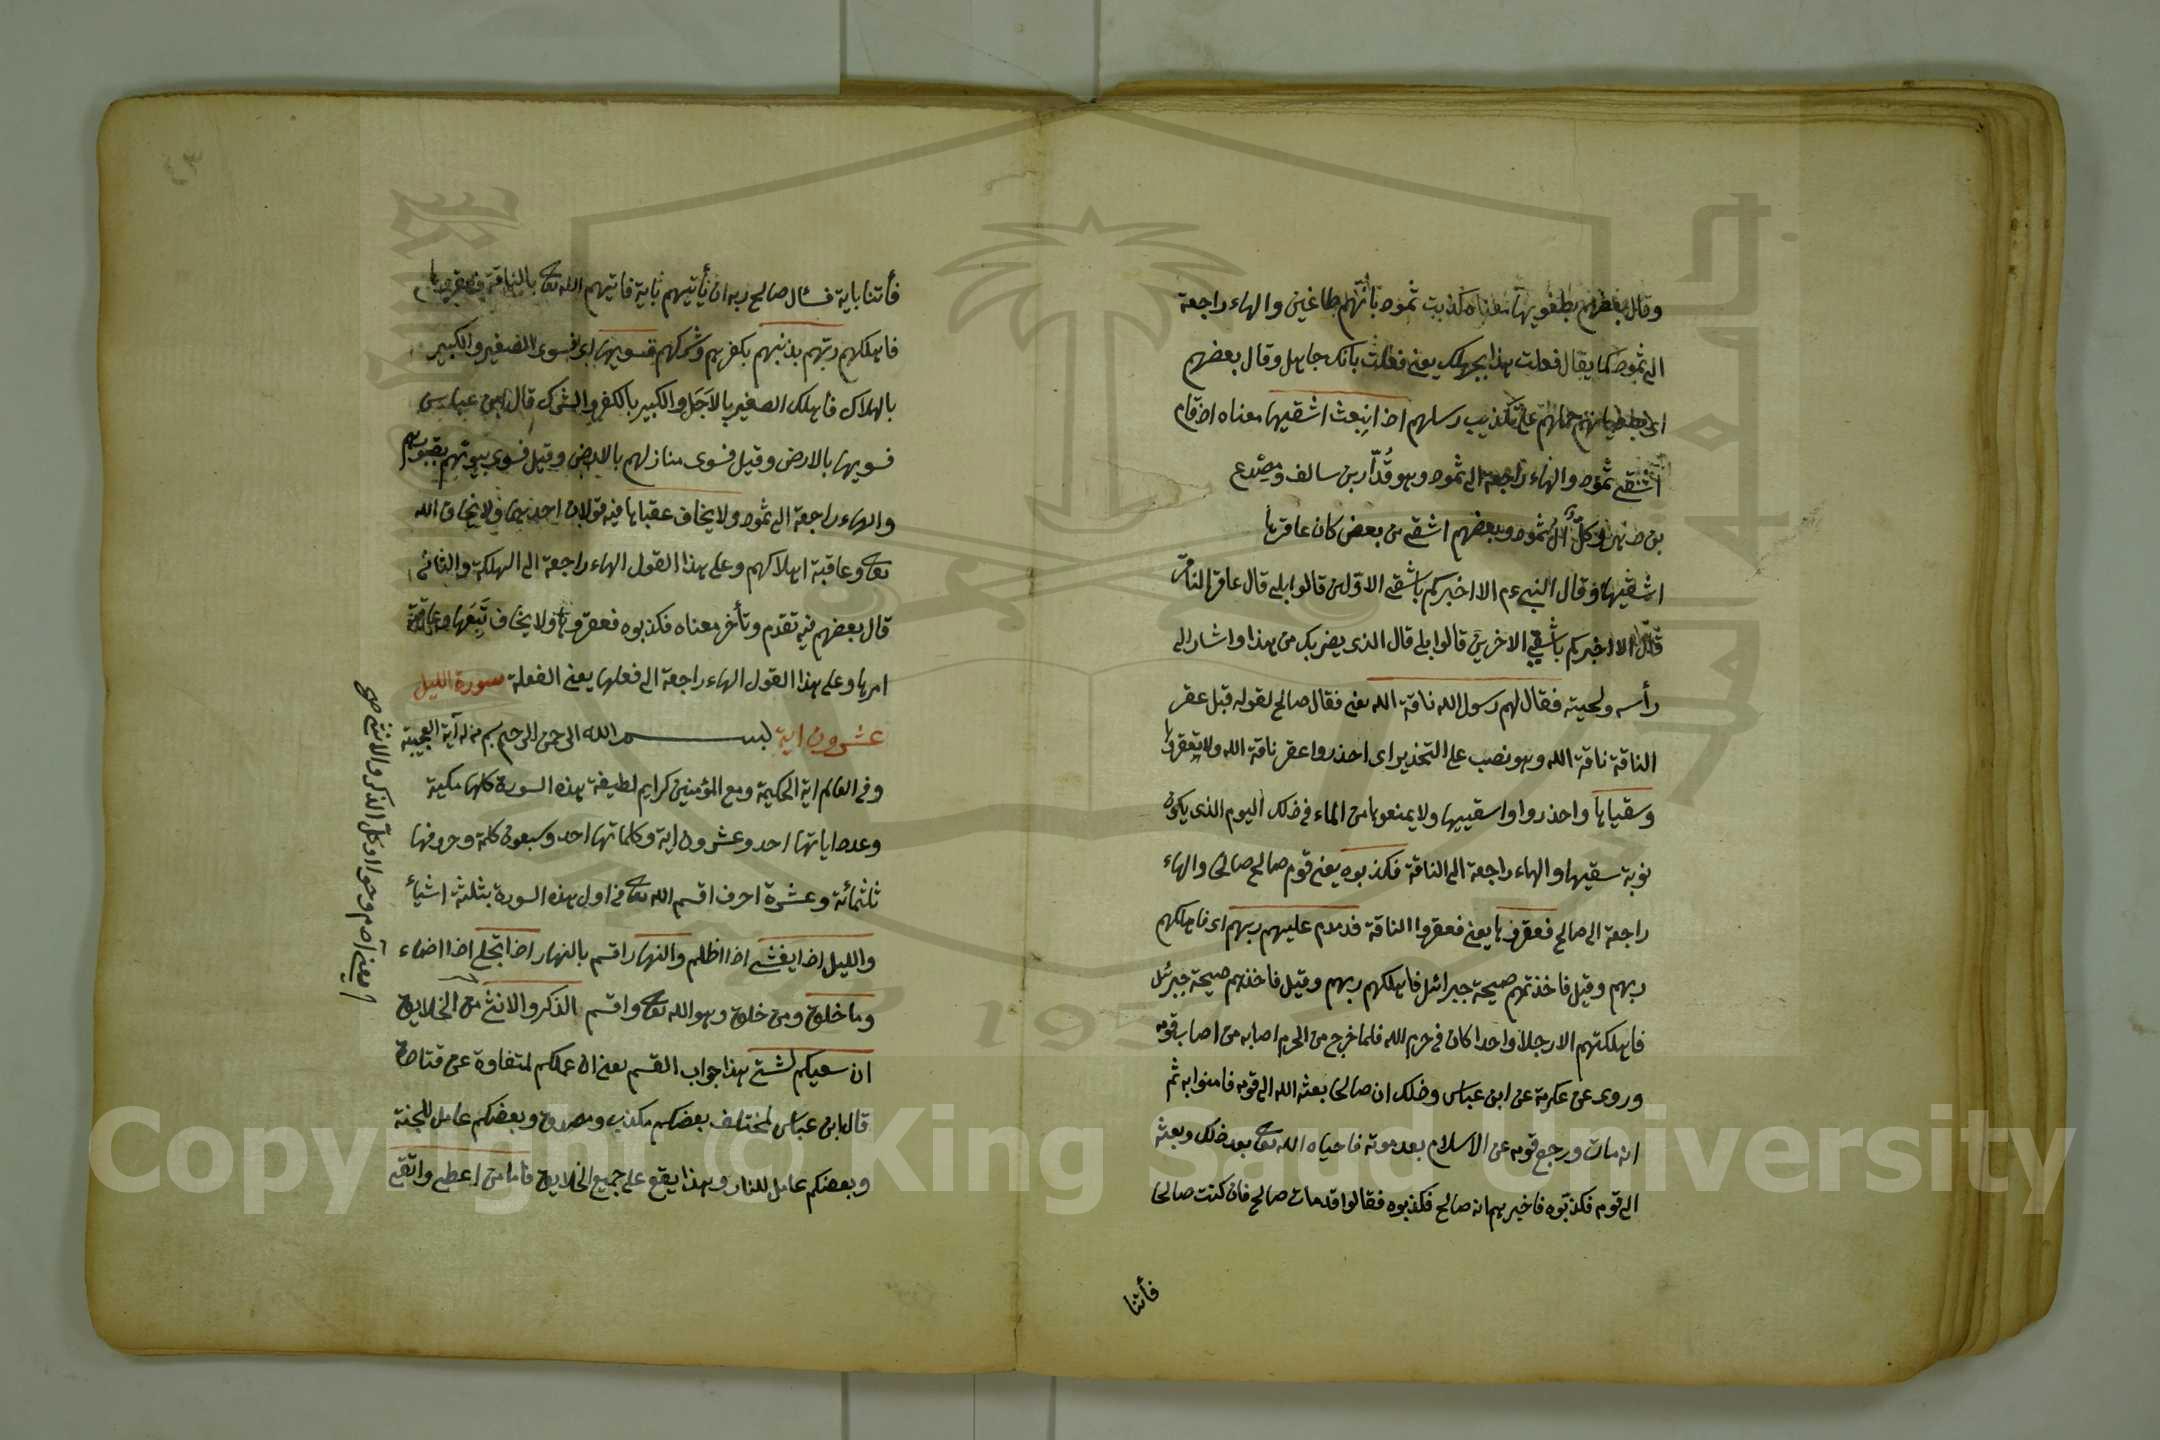 وقال بعضهم بطغويها معناه كذبت ثمود بانهم طاغين والهاء راجعة
الى ثمود كما يقال فعلت هذا بجهلك يعنى فعلت بانك جاهل وقال بعضهم
اى طغيانهم حملهم على تكذيب رسلهم اذ انبعث اشقيها معناه اذ قام
اشقى ثمود والهاء راجعة الى ثمود وهو قُدّار بن سالف ومصدع
بن وكل ثمود وبعضهم اشقى من بعض كان عاقرها
اشقيها وقال النبى ءم الا اخبركم باشقى الاولين قالوا بلى قال عاقر الناقة
قال الا اخبركم باشقى الاخرين قالوا بلى قال الذى يضربك من هذا واشار الى
رأسه ولحيته فقال لهم رسول الله ناقة الله يعنى فقال صالح لقومه قبل عقر
الناقة ناقة الله وهو نصب على التحذير اى احذروا عقر ناقة الله ولا تعقروها
وسقياها واحذروا واسقيها ولا يمنعوها من الماء فى ذلك اليوم الذى يكون
نوبة سقيها والهاء راجعة الى الناقة فكذبوه يعنى قوم صالح صالحا والهاء
راجعة الى صالح فعقروها يعنى فعقروا الناقة فدمدم عليهم ربهم اى فاهلكهم
ربهم وقيل فاخذتهم صيحة جبرائل فاهلكهم ربهم وقيل فاخذهم صيحة جبرئل
فاهلكتهم الا رجلا واحدا كان فى حرم الله فلما خرج من الحرم اصابه من اصاب قومه
وروى عن عكرمة عن ابن عباس وذلك ان صالحا بعثه الله الى قومه فامنوا به ثم
انه مات ورجع قومه عن الاسلام بعد موته فاحياه الله تعا بعد ذلك وبعثه
الى قومه فكذبوه فاخبرهم انه صالح فكذبوه فقالوا قد مات صالح فان كنت صالحا
فأتنا
فأتنا باية فسئال صالح ربه ان يأتيهم باية فاتيهم الله تعا بالناقة فعقروها
فاهلكهم ربهم بذنبهم بكفرهم وشركهم فسويها اى فسوى الصغير والكبير
بالهلاك فاهلك الصغير بالاجل والكبير بالكفر والشرك قال ابن عباس
فسويها بالارض وقيل فسوى منازلهم بالارض وقيل فسوى بيوتهم بقبورهم
والهاء راجعة الى ثمود ولا يخاف عقباها فيه قولان احديهما ولا يخاف الله
تعا وعاقبة اهلاكهم وعلى هذا القول الهاء راجعة الى الهلكة والثانى
قال بعضهم فيه تقدم وتأخر معناه فكذبوه فعقروها ولا يخاف تبعها وعاقبة
امرها وعلى هذا القول الهاء راجعة الى فعلها يعنى الفعلة سورة الليل
عشرون اية بسم الله الرحمن الرحيم بم من له آية العجيبة
وفى العالم اية الحكيمة ومع المؤمنين كرايم لطيفة هذه السورة كلها مكية
وعدد اياتها احد وعشرون اية وكلماتها احد وسبعون كلمة وحروفها
ثلثمائة وعشرة احرف اقسم الله تعا فى اول هذه السورة بثلثة اشياء
والليل اذا يغشى اذا اظلم والنهار اقسم بالنهار اذا تجلى اذا اضاء
وما خلق ومن خلق وهو الله تعا واقسم الذكر والانثى من الخلايق
ان سعيكم لشتى هذا جواب القسم يعنى ان عملكم لمتفاوة عن قتادة
قال ابن عباس لمختلف بعضكم مكذب ومصدق وبعضكم عامل للجنة
وبعضكم عامل للنار وهذا يقع على جميع الخلايق فاما من اعطى واتقى
يعنى آدم وحوا وكل الذكر والانثى صح
٤٣
1957
Copyright © King Saud University